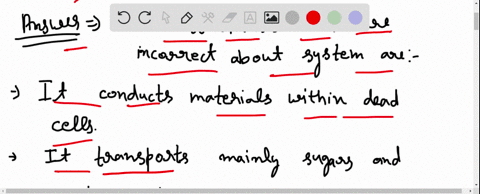 Answer ⇒ are
incorrect about system are:-
→ It conducts materials within dead
cells.
→ It transports mainly sugars and